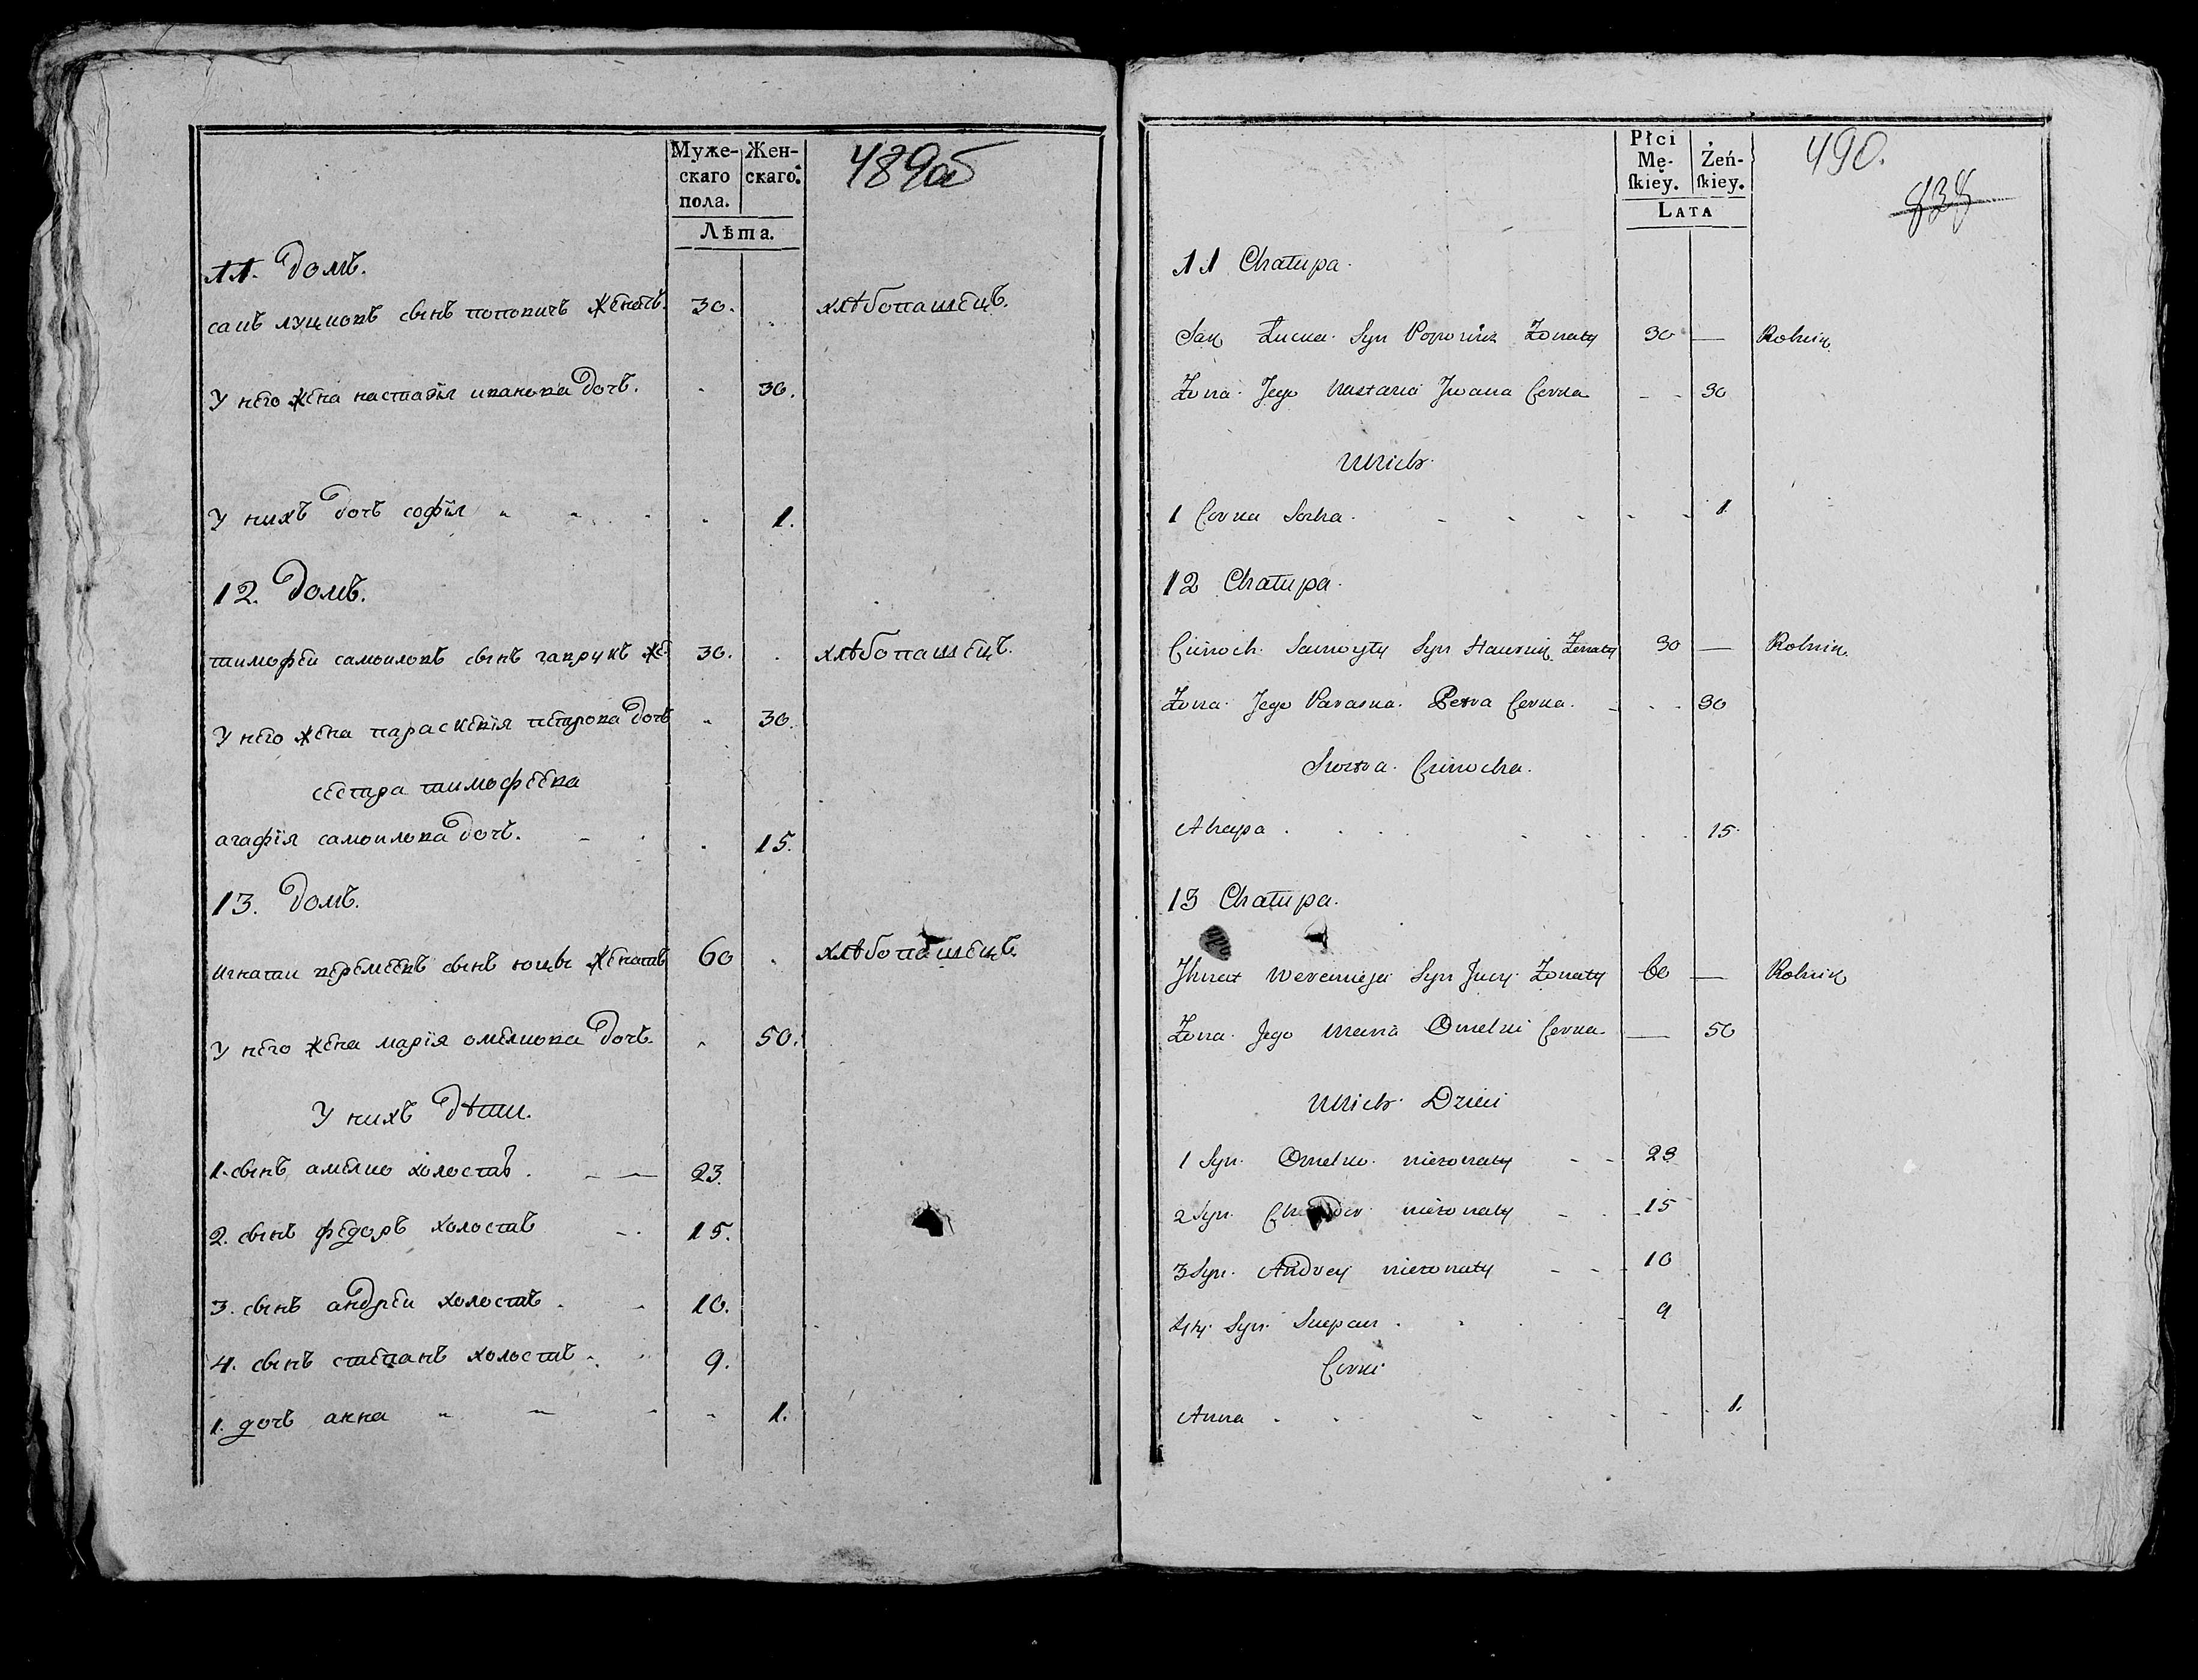 Муже-
скаго
пола.
Жен-
скаго.
Лѣта.
489об
11. Домъ.
сацъ луциовъ сынъ поповичъ женатъ. 30. хлѣбопашецъ.
У него жена настазїя иванова дочъ. 30.
У нихъ дочъ софїя 1.
12. Домъ.
тимофеи самоиловъ сынъ гаврукъ же 30. хлѣбопашецъ.
У него жена параскевїя петрова дочъ 30.
сестра тимофеева
агафїя самоилова дочъ. 15.
13. Домъ.
игнатеи веремеевъ сынъ юцы женатъ 60 хлѣбопашецъ
У него жена марїя омелиова дочъ. 50.
У нихъ дѣти.
1. сынъ амелио холостъ. 23.
2. сынъ федоръ холостъ 15.
3. сынъ андреи холостъ. 10.
4. сынъ степанъ холостъ. 9.
1. дочъ анна 1.
Płci
Mę-
ſkiey.
Żeń-
ſkiey.
LATA
490.
838
11 Chałupa.
Sac Łucka Syn Popowicz Żonaty 30 — Rolnik
Żona Jego Nastazia Jwana Corka 30
Unich
1 Corka Sozka. 1.
12 Chałupa.
Cimoch Samoyły Syn Hauruk Żonaty 30 — Rolnik
Żona Jego Paraska Petra Corka. 30
Siostra Cimocha.
Ahapa 15.
13 Chałupa.
Jhnat Weremieja Syn Jucy Żonaty 60 — Rolnik
Żona Jego Maria Omelni Corka — 50
Unich Dzieci
1 Syn Omelno nieżonaty 23
2 Syn nieżonaty 15
3 Syn Andrey nieżonaty 10
4ty Syn Sciepan 9
Corki
Anna 1.